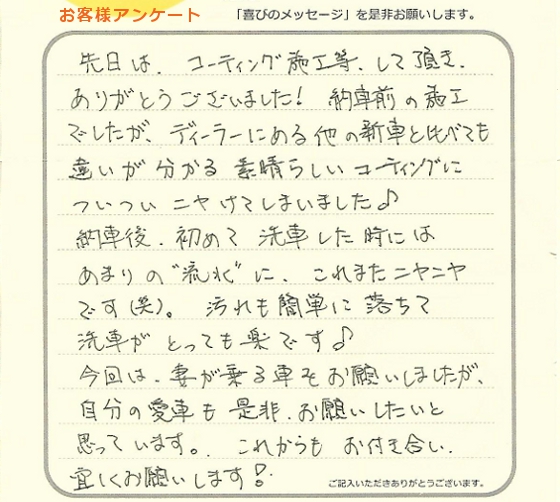 お客様アンケート 「喜びのメッセージ」を是非お願いします。
先日は、コーティング施工等、して頂き、
ありがとうございました! 納車前の施工
でしたが、ディーラーにある他の新車と比べても
違いが分かる 素晴らしいコーティングに
ついつい ニヤけてしまいました♪
納車後、初めて 洗車した時には
あまりの"流水"に、これまたニヤニヤ
です(笑)。 汚れも簡単に落ちて
洗車が とっても楽です♪
今回は、妻が乗る車をお願いしましたが、
自分の愛車も 是非、お願いしたいと
思っています。 これからも お付き合い、
宜しくお願いします!
ご記入いただきありがとうございます。